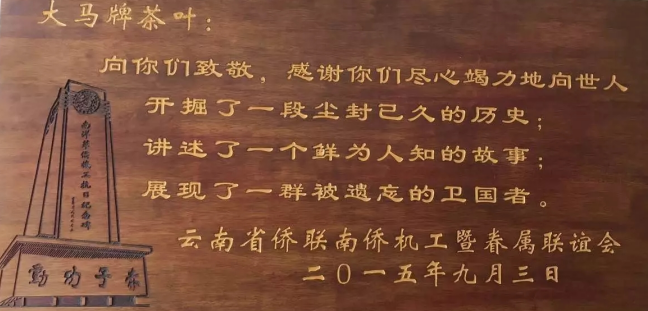 大马牌茶叶：
向你们致敬，感谢你们尽心竭力地向世人
开掘了一段尘封已久的历史；
讲述了一个鲜为人知的故事；
展现了一群被遗忘的卫国者。
云南省侨联南侨机工暨眷属联谊会
二〇一五年九月三日
南洋华侨机工抗日纪念碑
赤子功勋